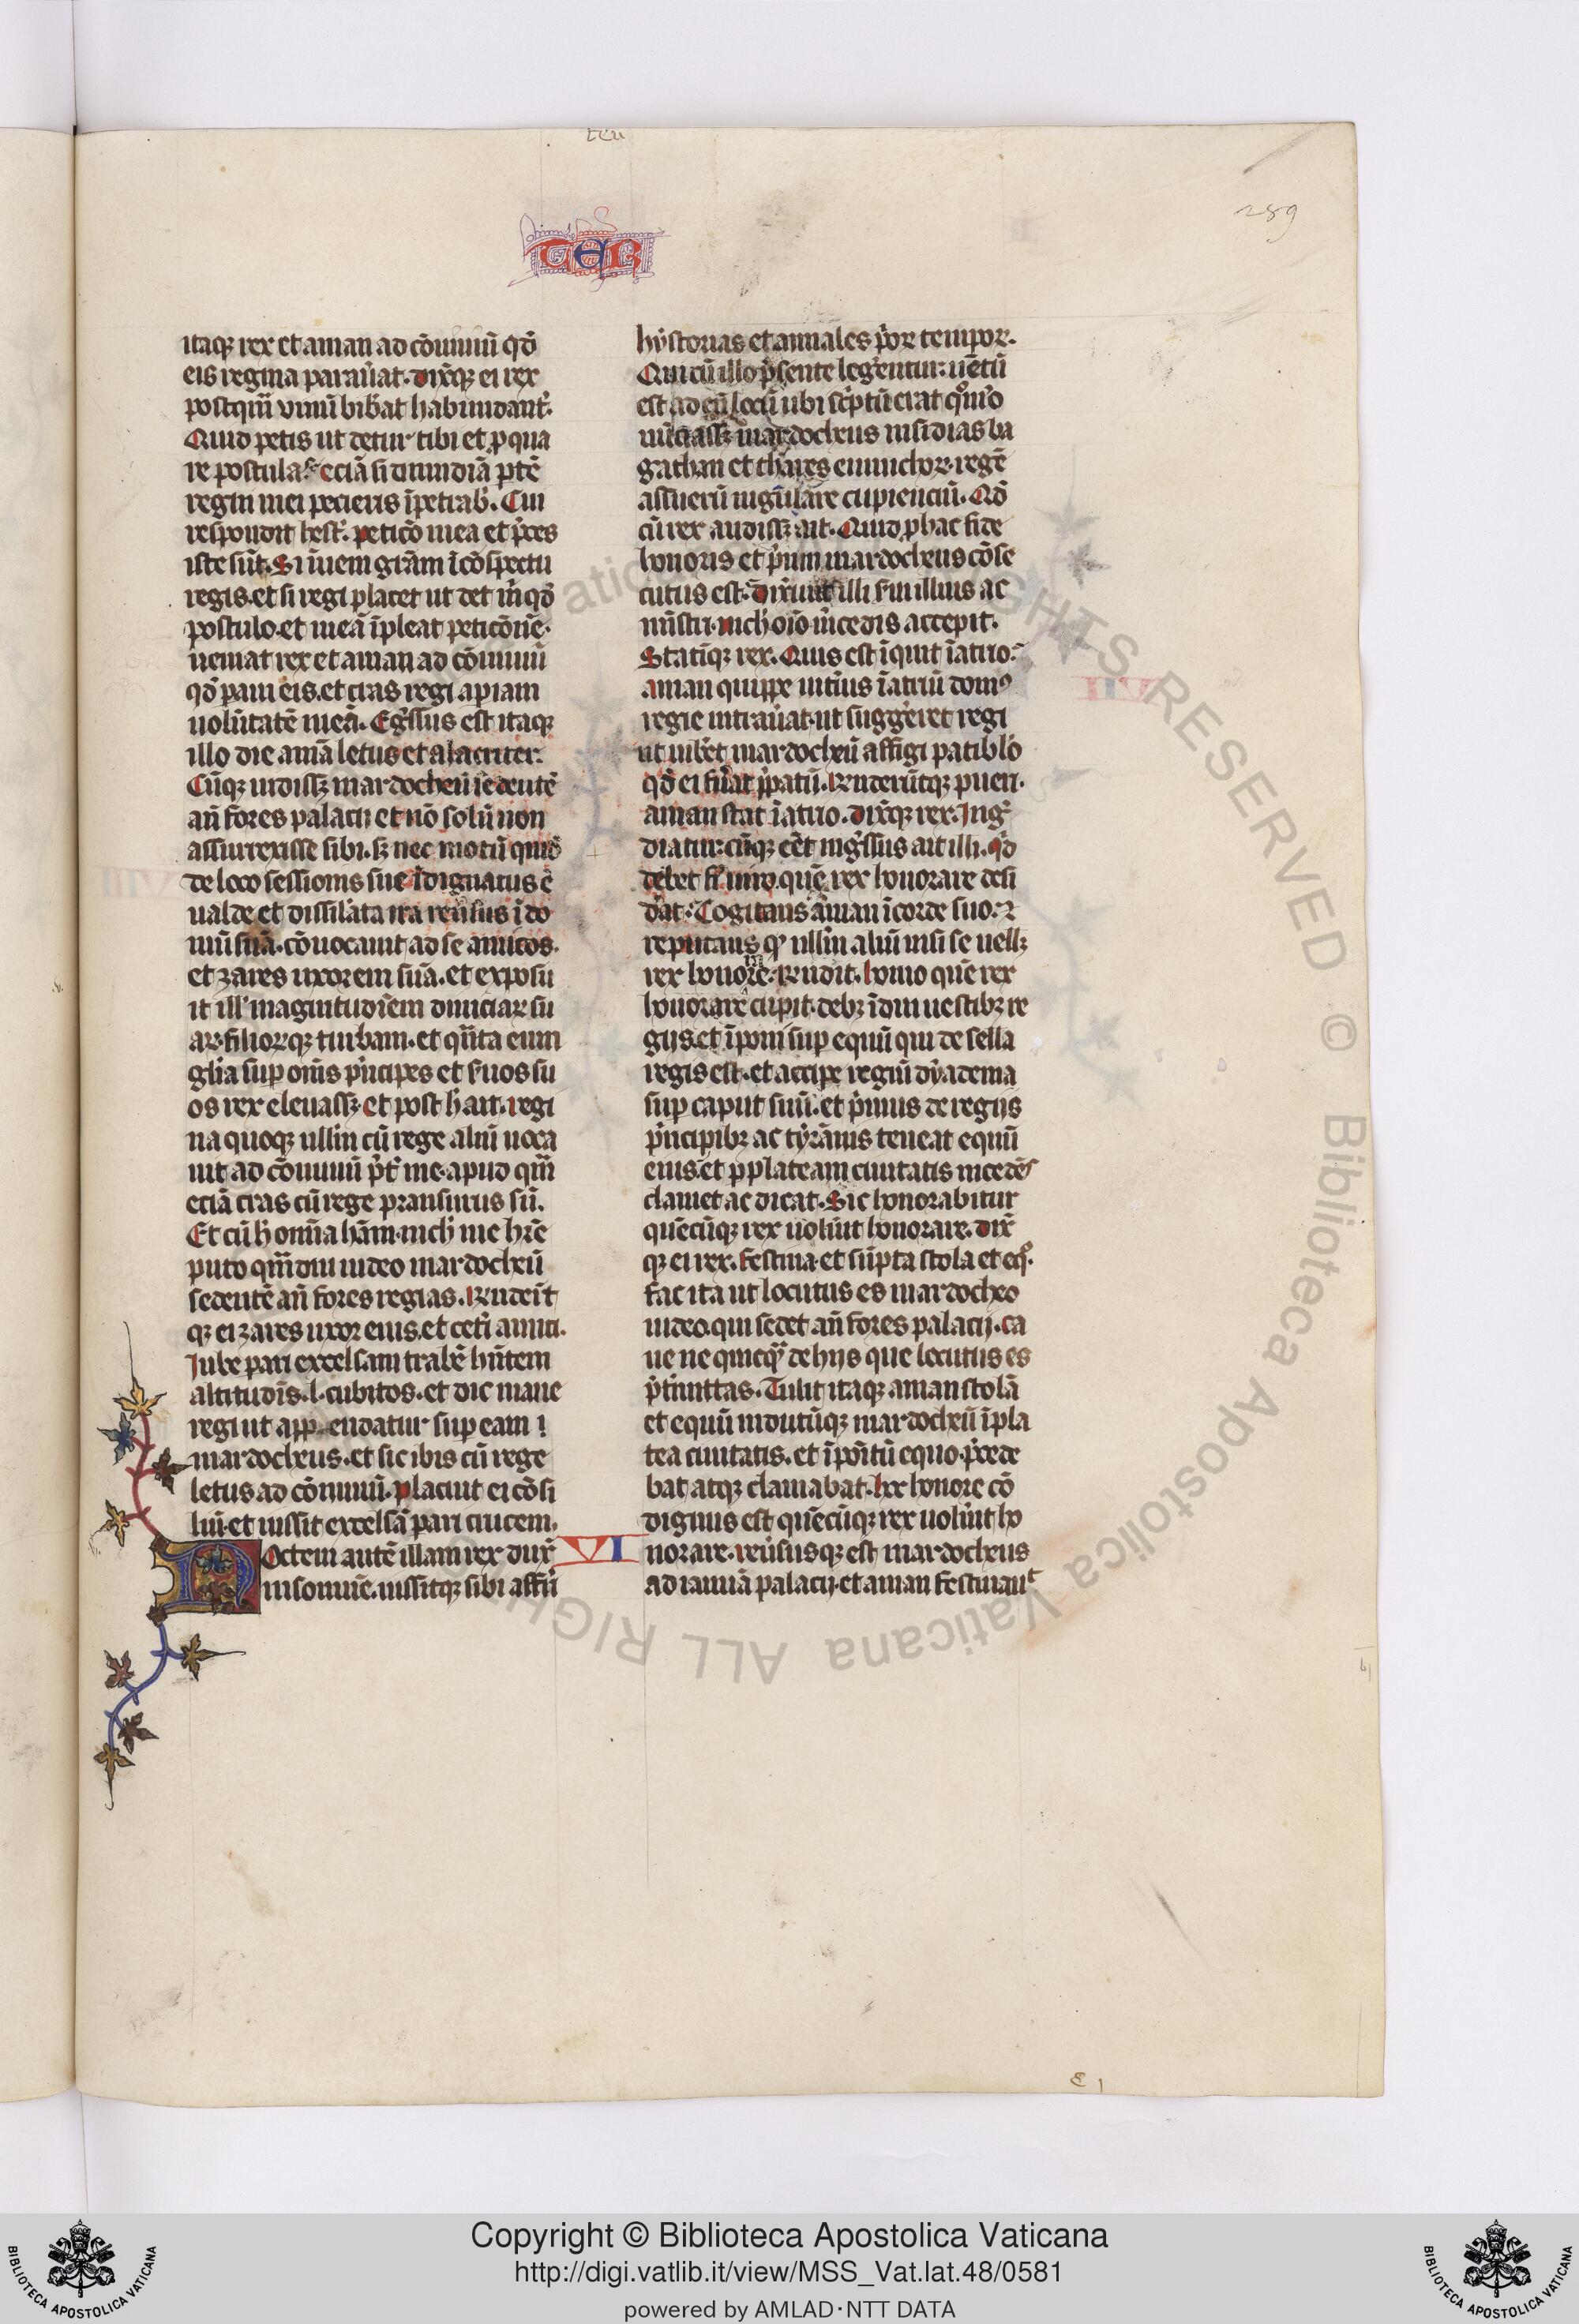 teu
289
TER
itaqꝫ rex et aman ad ɔ̄uiuiū qd̄
eis regina parau̓at. dix̄qꝫ ei rex
postqm̄ vinū bib̓at habundant̓.
Quid petis ut detur tibi et p qua
re postulas eciā si dimidiā ptē
regni mei pecieris īpetrab̓. Cui
respondit hest̓. peticō mea et p̓ces
iste sūt. Si īueni gr̄am ī cōspectu
regis. et si regi placet ut det m̓ qd̄
postulo. et meā īpleat peticōnē.
ueniat rex et aman ad cōuiuiū
qd̄ paui eis. et cras regi apiam
uolūtatē meā. Egr̓ssus est itaqꝫ
illo die amā letus et alacriter.
Cūqꝫ uidissꝫ mardocheū sedentē
an̄ fores palacij et nō solū non
assurrexisse sibi. sꝫ nec motū quid̓
de loco sessionis sue īdignatus ē
ualde. et dissil̓ata ira reu̓sus ī do
mū suā. cōuocauit ad se amicos.
et zares uxorem suā. et exposu
it ill̓ magnitudīem diuiciaꝝ su
aꝝ. filioꝝqꝫ turbam. et qn̄ta eum
gl̓ia sup om̄s p̓ncipes et s̓uos su
os rex eleuassꝫ. et post h̓ ait. regi
na quoqꝫ nllīn cū rege aliū uoca
uit ad cōuiuiū p̓t̓ me. apud qm̄
eciā cras cū rege pransurus sū.
Et cū h̓ omīa hām. nich̓ me hr̄e
puto qm̄diu iudeo mardocheū
sedentē an̄ fores regias. Rn̄deīt
qꝫ ei zares uxor eius. et cet̓i amici.
Jube pari excelsam trabē hn̄tem
altitudīs .l. cubitos. et dic mane
regi ut app endatur sup eam
mardocheus. et sic ibis cū rege
letus ad cōuiuiū. placuit ei cōsi
liū. et iussit excelsā pari crucem.
VI
Noctem autē illam rex dux̄
insomnē. iussitqꝫ sibi affr̄i
hystorias et annales p̓oꝝ tempoꝝ.
Qui cū illo p̓sente leg̓entur. uētū
est ad eū locū ubi sc̓ptū erat qºm̊o
nūciassꝫ mardocheus insidias ba
gathan et thares eunuchoꝝ. regē
assuerū iugulare cupienciū. Qd̄
cū rex audissꝫ ait. Quid p hac fide
honoris et p̓mii mardocheus cōse
cutus est. dix̄unt illi s̓ui illius ac
mīstri. nich̓ oīo m̓cedis accepit.
Statīqꝫ rex. Quis est īquit ī atrio.
aman quippe int̓ius ī atriū domꝰ
regie intrau̓at. ut sugg̓eret regi
ut iub̓et mardocheū affigi patib̓lo
qd̄ ei fu̓at p̓patū. Rn̄derūtqꝫ pueri.
aman stat ī atrio. dix̄qꝫ rex. Ing̓
diatur. cūqꝫ eēt ingr̓ssus ait illi. qd̄
debet fi̓ uiro. quē rex honorare desi
d̓at. Cogitans aman ī corde suo. ⁊
reputans qꝫ nllīn aliū nisi se uellꝫ
rex honore. Rn̄dit. homo quē rex
honorare cupit. debꝫ īdui uestibꝫ re
gijs. et īponi sup equū qui de sella
regis est. et accipe regiū dyadema
sup caput suū. et p̓mus de regijs
p̓ncipibꝫ ac tyrānis teneat equū
eius. et p plateam ciuitatis incedēs
clamet ac dicat. Sic honorabitur
quēcūqꝫ rex uolu̓it honorare. dix̄
qꝫ ei rex. festina. et sūpta stola et eqº.
fac ita ut locutus es mardocheo
iudeo. qui sedet an̄ fores palacij. ca
ue ne quicqᷓ de hijs que locutus es
p̓t̓mittas. Tulit itaqꝫ aman stolā
et equū indutūqꝫ mardocheū ī pla
tea ciuitatis. et īpoitū equo. p̓cede
bat atqꝫ clamabat. hoc honore cō
dignus est quēcūqꝫ rex uolu̓it ho
norare. reu̓susqꝫ est mardocheus
ad ianuā palacij. et aman festinauᵗ
BIBLIOTECA APOSTOLICA VATICANA
Copyright © Biblioteca Apostolica Vaticana
http://digi.vatlib.it/view/MSS_Vat.lat.48/0581
powered by AMLAD·NTT DATA
BIBLIOTECA APOSTOLICA VATICANA
© Biblioteca Apostolica Vaticana ALL RIGHTS RESERVED